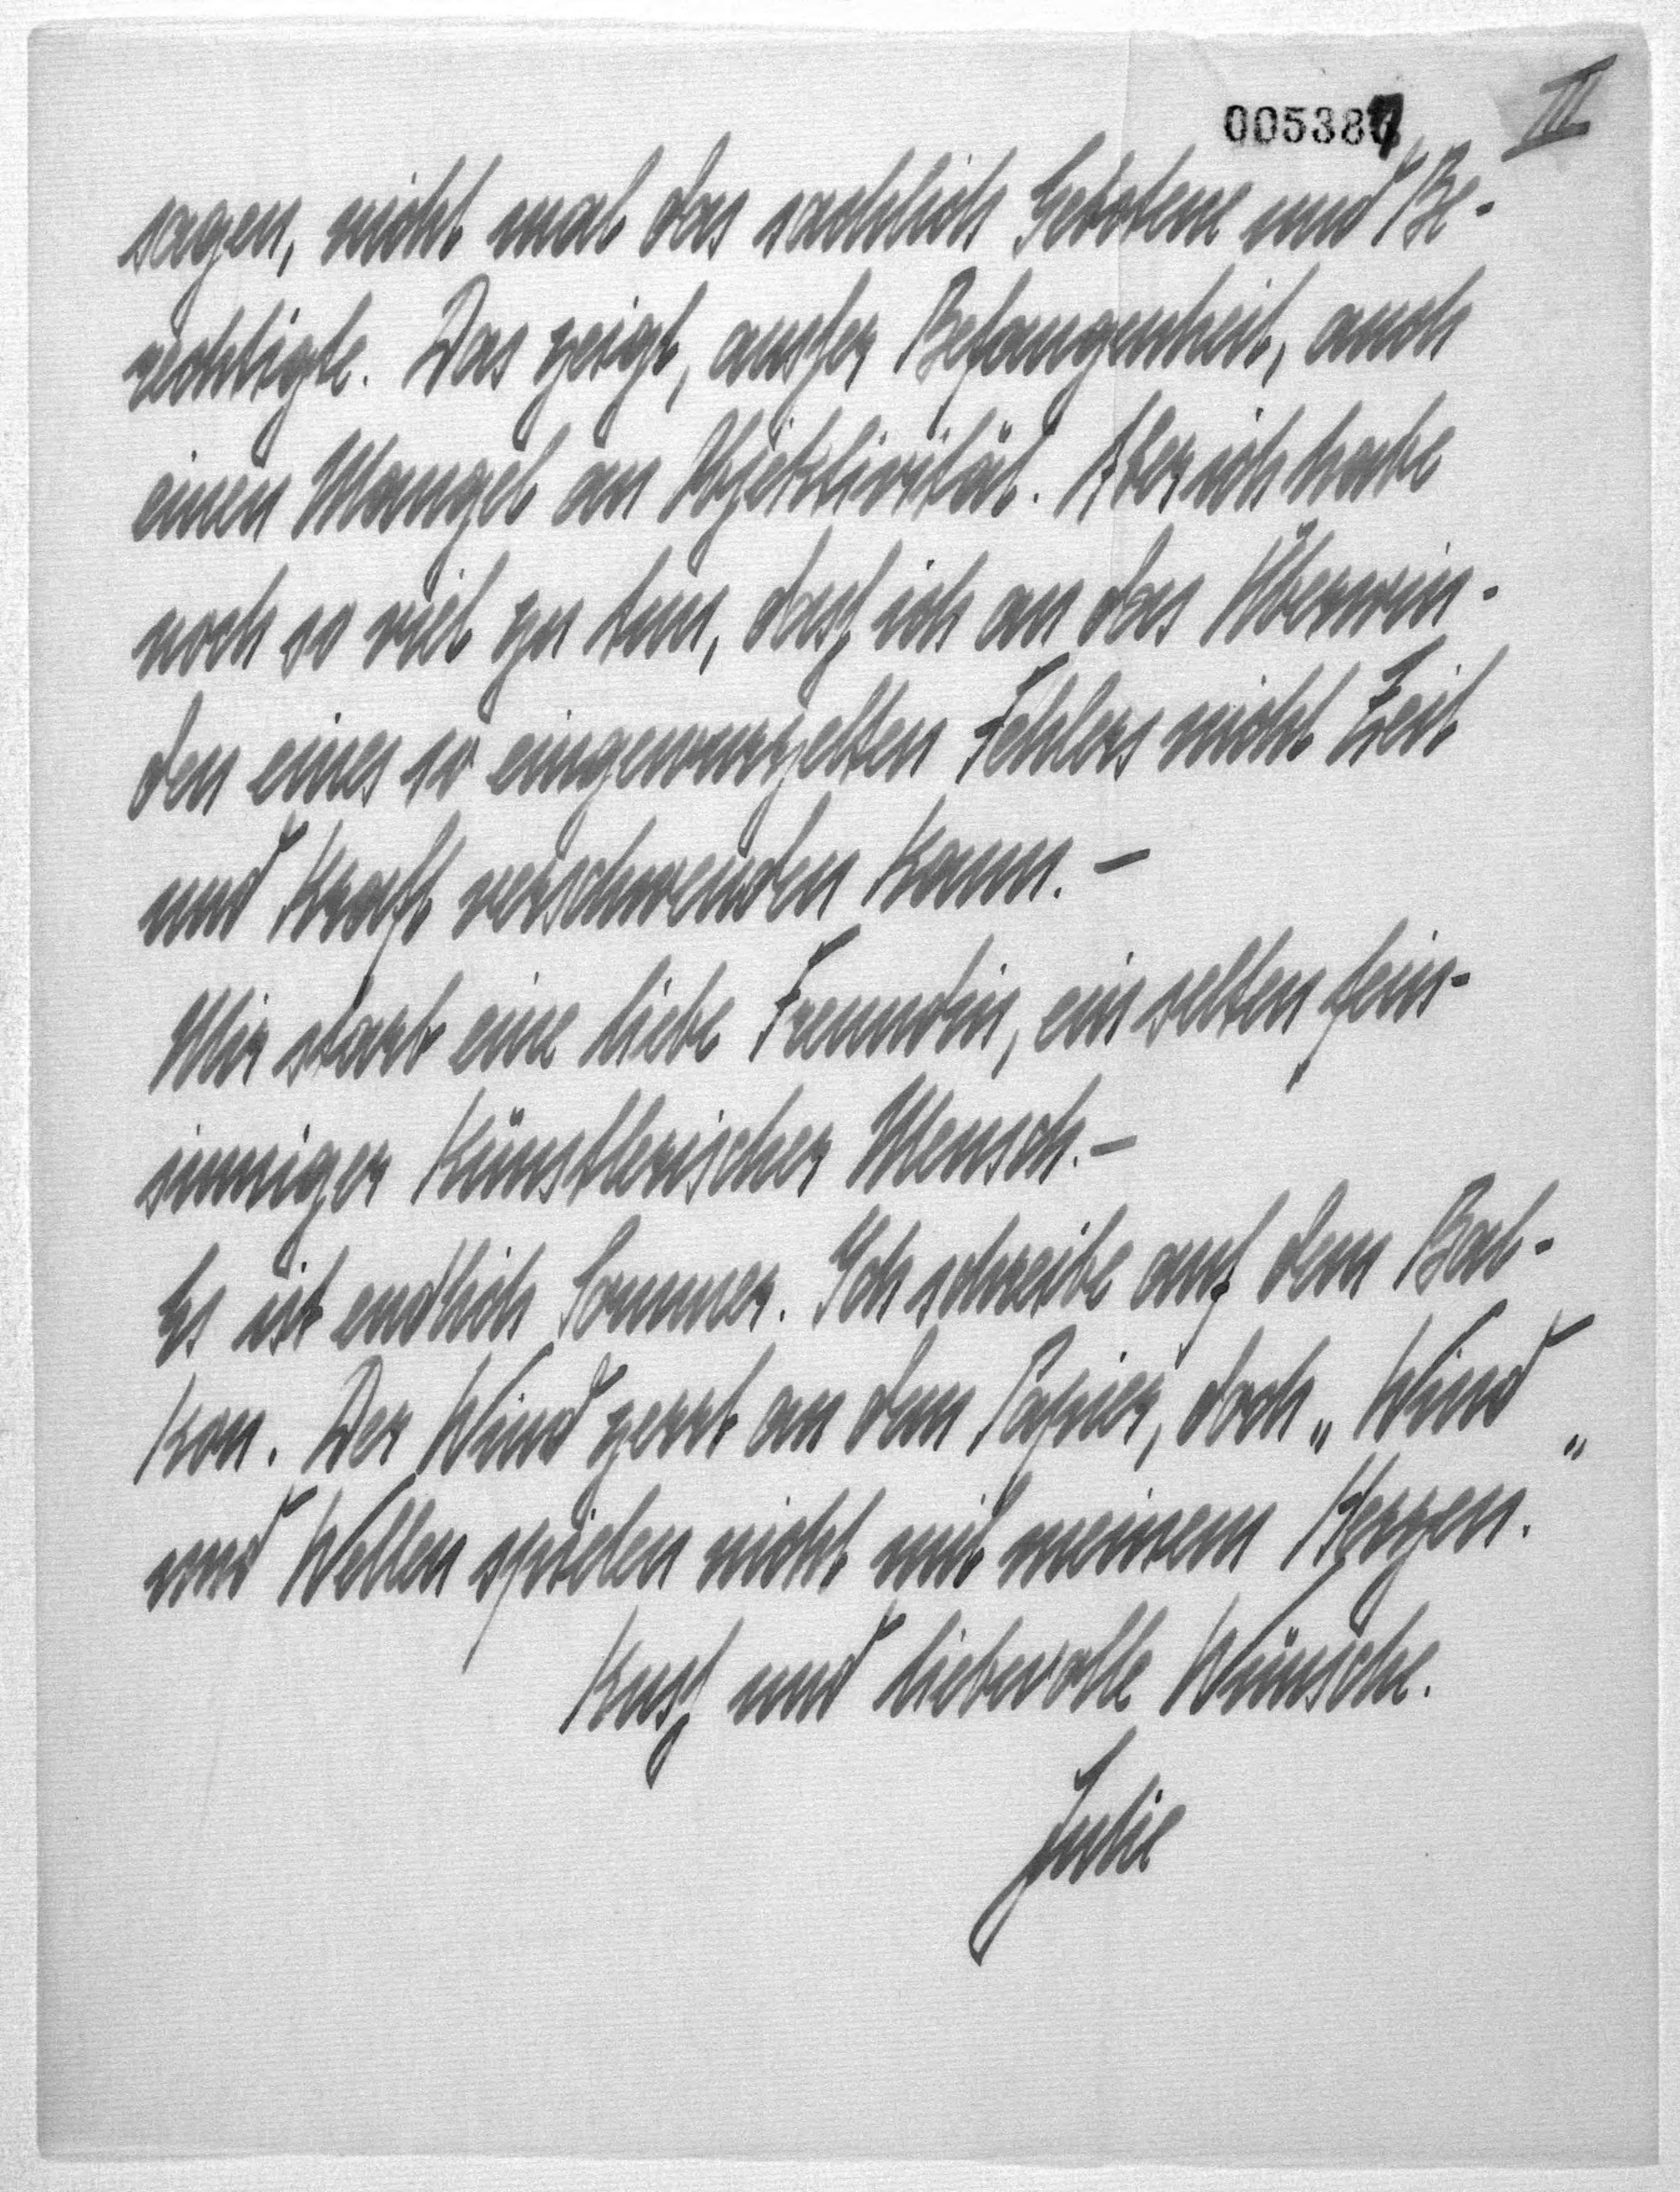 005387 II
sagen, nicht mal das sachlich Gebotene und Be-
rechtigte. Das zeigt, ausser Befangenheit, auch
einen Mangel an Objektivität. Aber ich habe
noch so viel zu tun, dasz ich an das Überwin-
den eines so eingewurzelten Fehlers nicht Zeit
und Kraft verschwenden kann. –
Mir starb eine liebe Freundin, ein selten fein-
sinniger künstlerischer Mensch. –
Es ist endlich Sommer. Ich schreibe auf dem Bal-
kon. Der Wind zerrt an dem Papier, doch „Wind
und Wellen spielen nicht mit meinem Herzen.“
Kusz und liebevolle Wünsche.
Julie